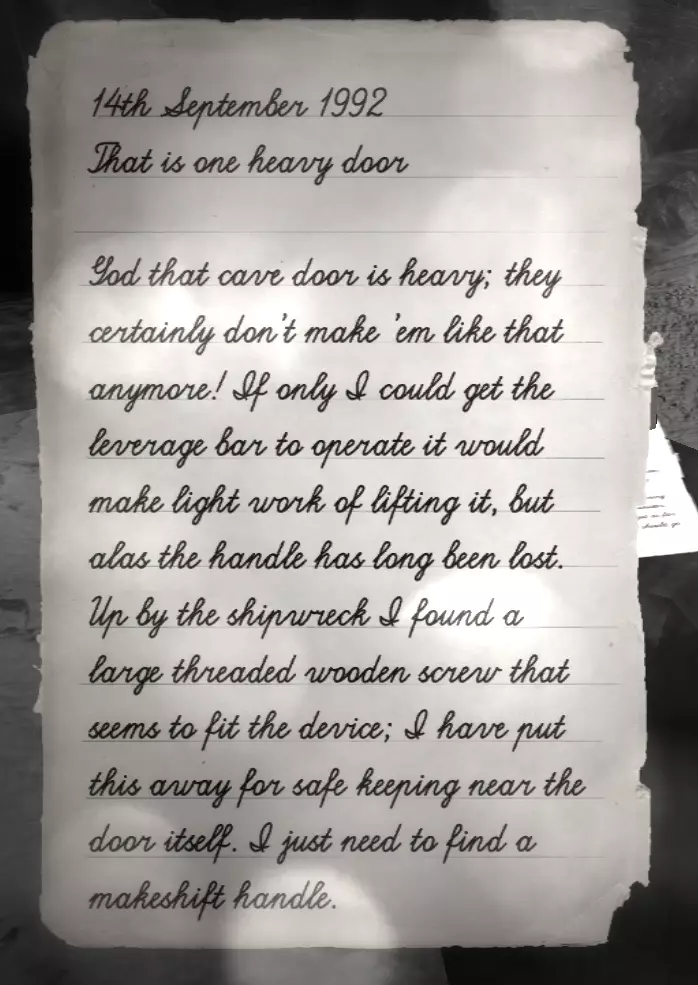 14th September 1992
That is one heavy door
God that cave door is heavy; they
certainly don't make 'em like that
anymore! If only I could get the
leverage bar to operate it would
make light work of lifting it, but
alas the handle has long been lost.
Up by the shipwreck I found a
large threaded wooden screw that
seems to fit the device; I have put
this away for safe keeping near the
door itself. I just need to find a
makeshift handle.